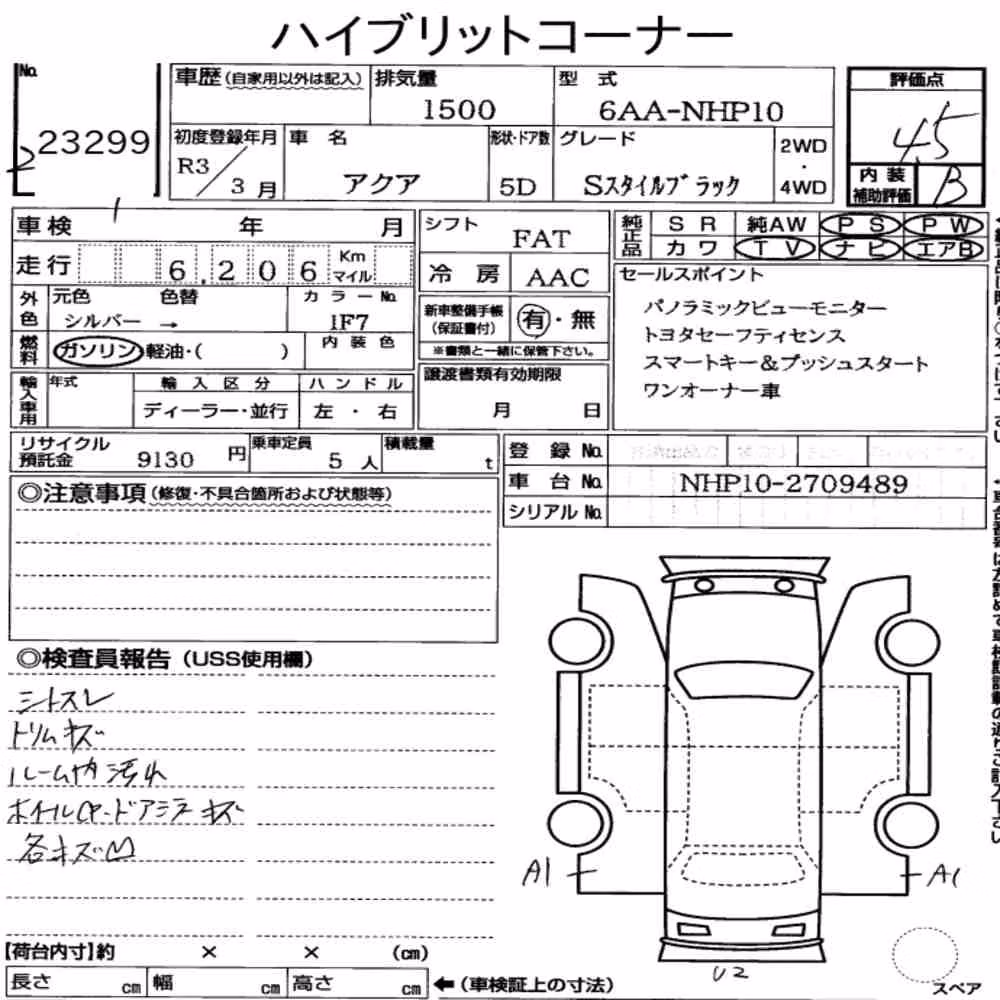 ハイブリットコーナー
No.
23299
車歴(自家用以外は記入)
排気量
1500
型 式
6AA-NHP10
評価点
4.5
初度登録年月
R3/3月
車 名
アクア
形状・ドア数
5D
グレード
Sスタイルブラック
2WD
・
4WD
内装
補助評価
B
車検 年 月
走行 6.206 Km マイル
シフト
FAT
冷房 AAC
純正品
SR 純AW PS PW
カワ TV ナビ エアB
外色
元色 色替
シルバー →
カラーNo.
1F7
燃料
ガソリン・軽油・( )
内装色
新車整備手帳
(保証書付)
有・無
※書類と一緒に保管下さい。
セールスポイント
パノラミックビューモニター
トヨタセーフティセンス
スマートキー&プッシュスタート
ワンオーナー車
輸入車用
年式
輸入区分
ディーラー・並行
ハンドル
左・右
譲渡書類有効期限
月 日
リサイクル
預託金 9130 円
乗車定員
5人
積載量
t
登録No.
車台No. NHP10-2709489
シリアルNo.
◎注意事項(修復・不具合箇所および状態等)
◎検査員報告(USS使用欄)
シートスレ
トリムキズ
ルーム内汚れ
各キズ凹
A1
A1
U2
スペア
【荷台内寸】約 × × (cm)
長さ cm 幅 cm 高さ cm
←(車検証上の寸法)